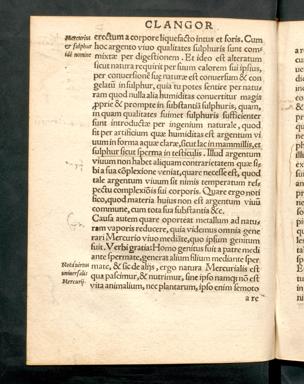 CLANGOR
Mercurius
& sulphur
idē nomine
erectum a corpore liquefacto intus et foris. Cum
hoc argento viuo qualitates sulphuris sunt com-
mixtæ per digestionem. Et ideo est alteratum
sicut natura requirit per suum calorem sui ipsius,
per conuersionē suę naturæ est conuersum & con
gelatū in sulphur, quia tu potes sentire per natu
ram quod nulla alia humiditas conuertitur magis
pprie & prompte in substantiā sulphuris, quam,
in quam qualitates suimet sulphuris sufficienter
sunt introductæ per ingenium naturale, quod
sit per artificium quæ humiditas est argentum vi
uum in forma aquæ claræ, sicut lac in mammillis, et
sulphur sicut sperma in testiculis. Illud argentum
viuum non habet aliquam contrarietatem quæ si-
bi a sua cōplexione veniat, quare necesse est, quod
tale argentum viuum sit nimis temperatum refs
pectu complexiōis sui corporis. Quare ergo noti
fico, quod materia huius non est argentum viuū
commune, cum tota sua substantia &c.
Causa autem quare oporteat metallum ad natu,
ram vaporis reducere, quia videmus omnia gene
rari Mercurio viuo mediāte, quo ipsum genitum
fuit. Verbi gratia: Homo genitus fuit a patre medi
ante spermate, generat alium filium mediante sper
mate, & sic de alijs, ergo natura Mercurialis est
qua pascimur, & nutrimur, sine ipso namqȝ nō est
vita animalium, nec plantarum, ipso enim remoto
Nota virtus
uniuersalis
Mercurij.
a re